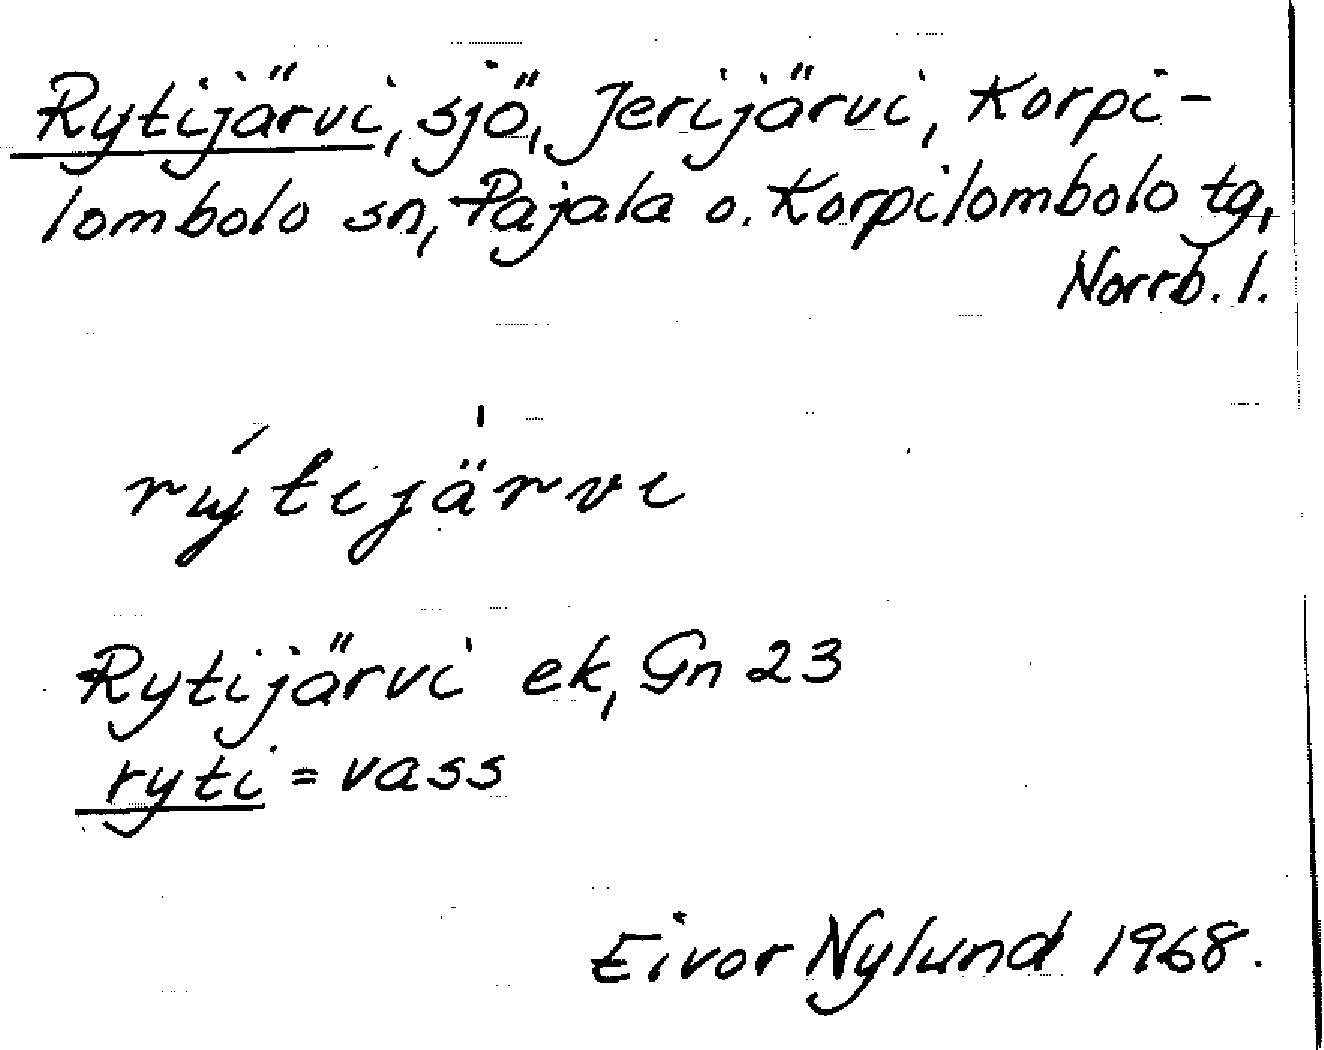 Rytijärvi, sjö, Jerijärvi, Korpi-
lombolo sn, Pajala o. Korpilombolo tg,
Norrb. l.
rýtijä̍rvi
Rytijärvi ek, Gn 23
ryti = vass
Eivor Nylund 1968.